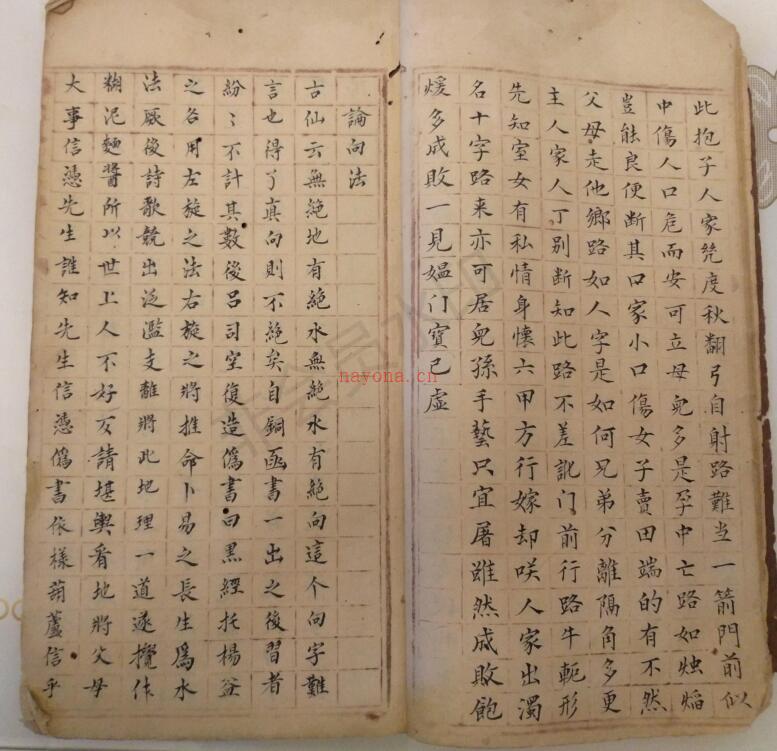 此抱子人家凳度秋翻弓自射路難当一箭門前似
中傷人口危而安可立母兜多是孕中亡路如烛焰
豈能良便断其口家小口傷女子賣田端的有不然
父母走他鄉路如人字是如何兄弟分離隔角多更
主人家人丁別断知此路不差訛门前行路牛軛形
先知室女有私情身懷六甲方行嫁却咲人家出濁
名十字路来亦可居兜孫手藝只宜屠雖然成敗飽
煖多成敗一見媪门寳已虛
論向法
古仙云無絶地有絶水無絶水有絶向這个向字難
言也得了真向則不絶矣自銅函書一出之後習者
紛〻不計其數後吕司空復造僞書曰黑經托楊益
之名用左旋之法右旋之將推命卜易之長生爲水
法厥後詩歌競出泛濫支離將此地理一道遂攪作
糊泥麵醬所以世上人不好歹請堪輿看地將父母
大事信憑先生誰知先生信憑僞書依様葫蘆信乎
nayona.cn